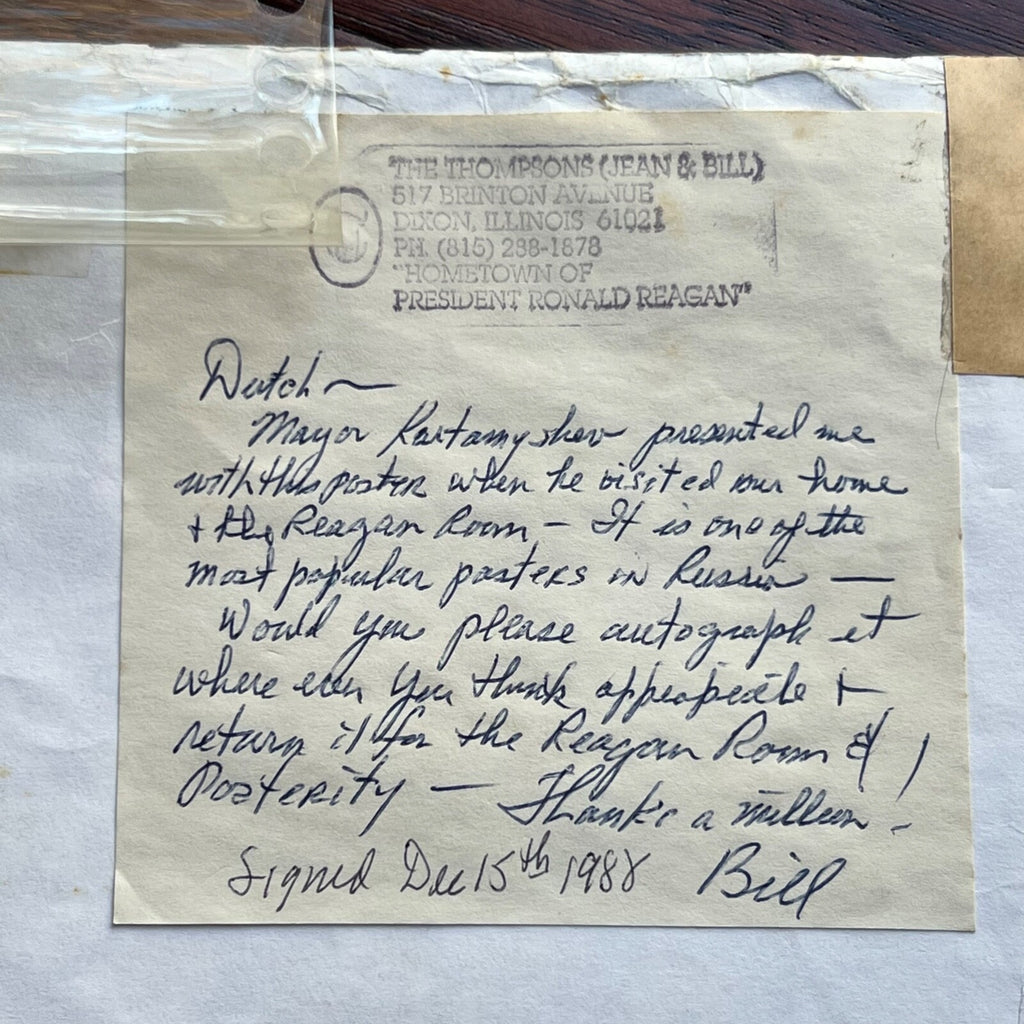 THE THOMPSONS (JEAN & BILL)
517 BRINTON AVENUE
DIXON, ILLINOIS 61021
PH. (815) 288-1878
"HOMETOWN OF
PRESIDENT RONALD REAGAN"
Dutch ~
Mayor presented me
with this poster when he visited our home
+ the Reagan Room - It is one of the
most popular posters in Russia —
Would you please autograph it
where ever you think appropriate +
return it for the Reagan Room &
Posterity — Thank's a million -
Signed Dec 15th 1988 Bill